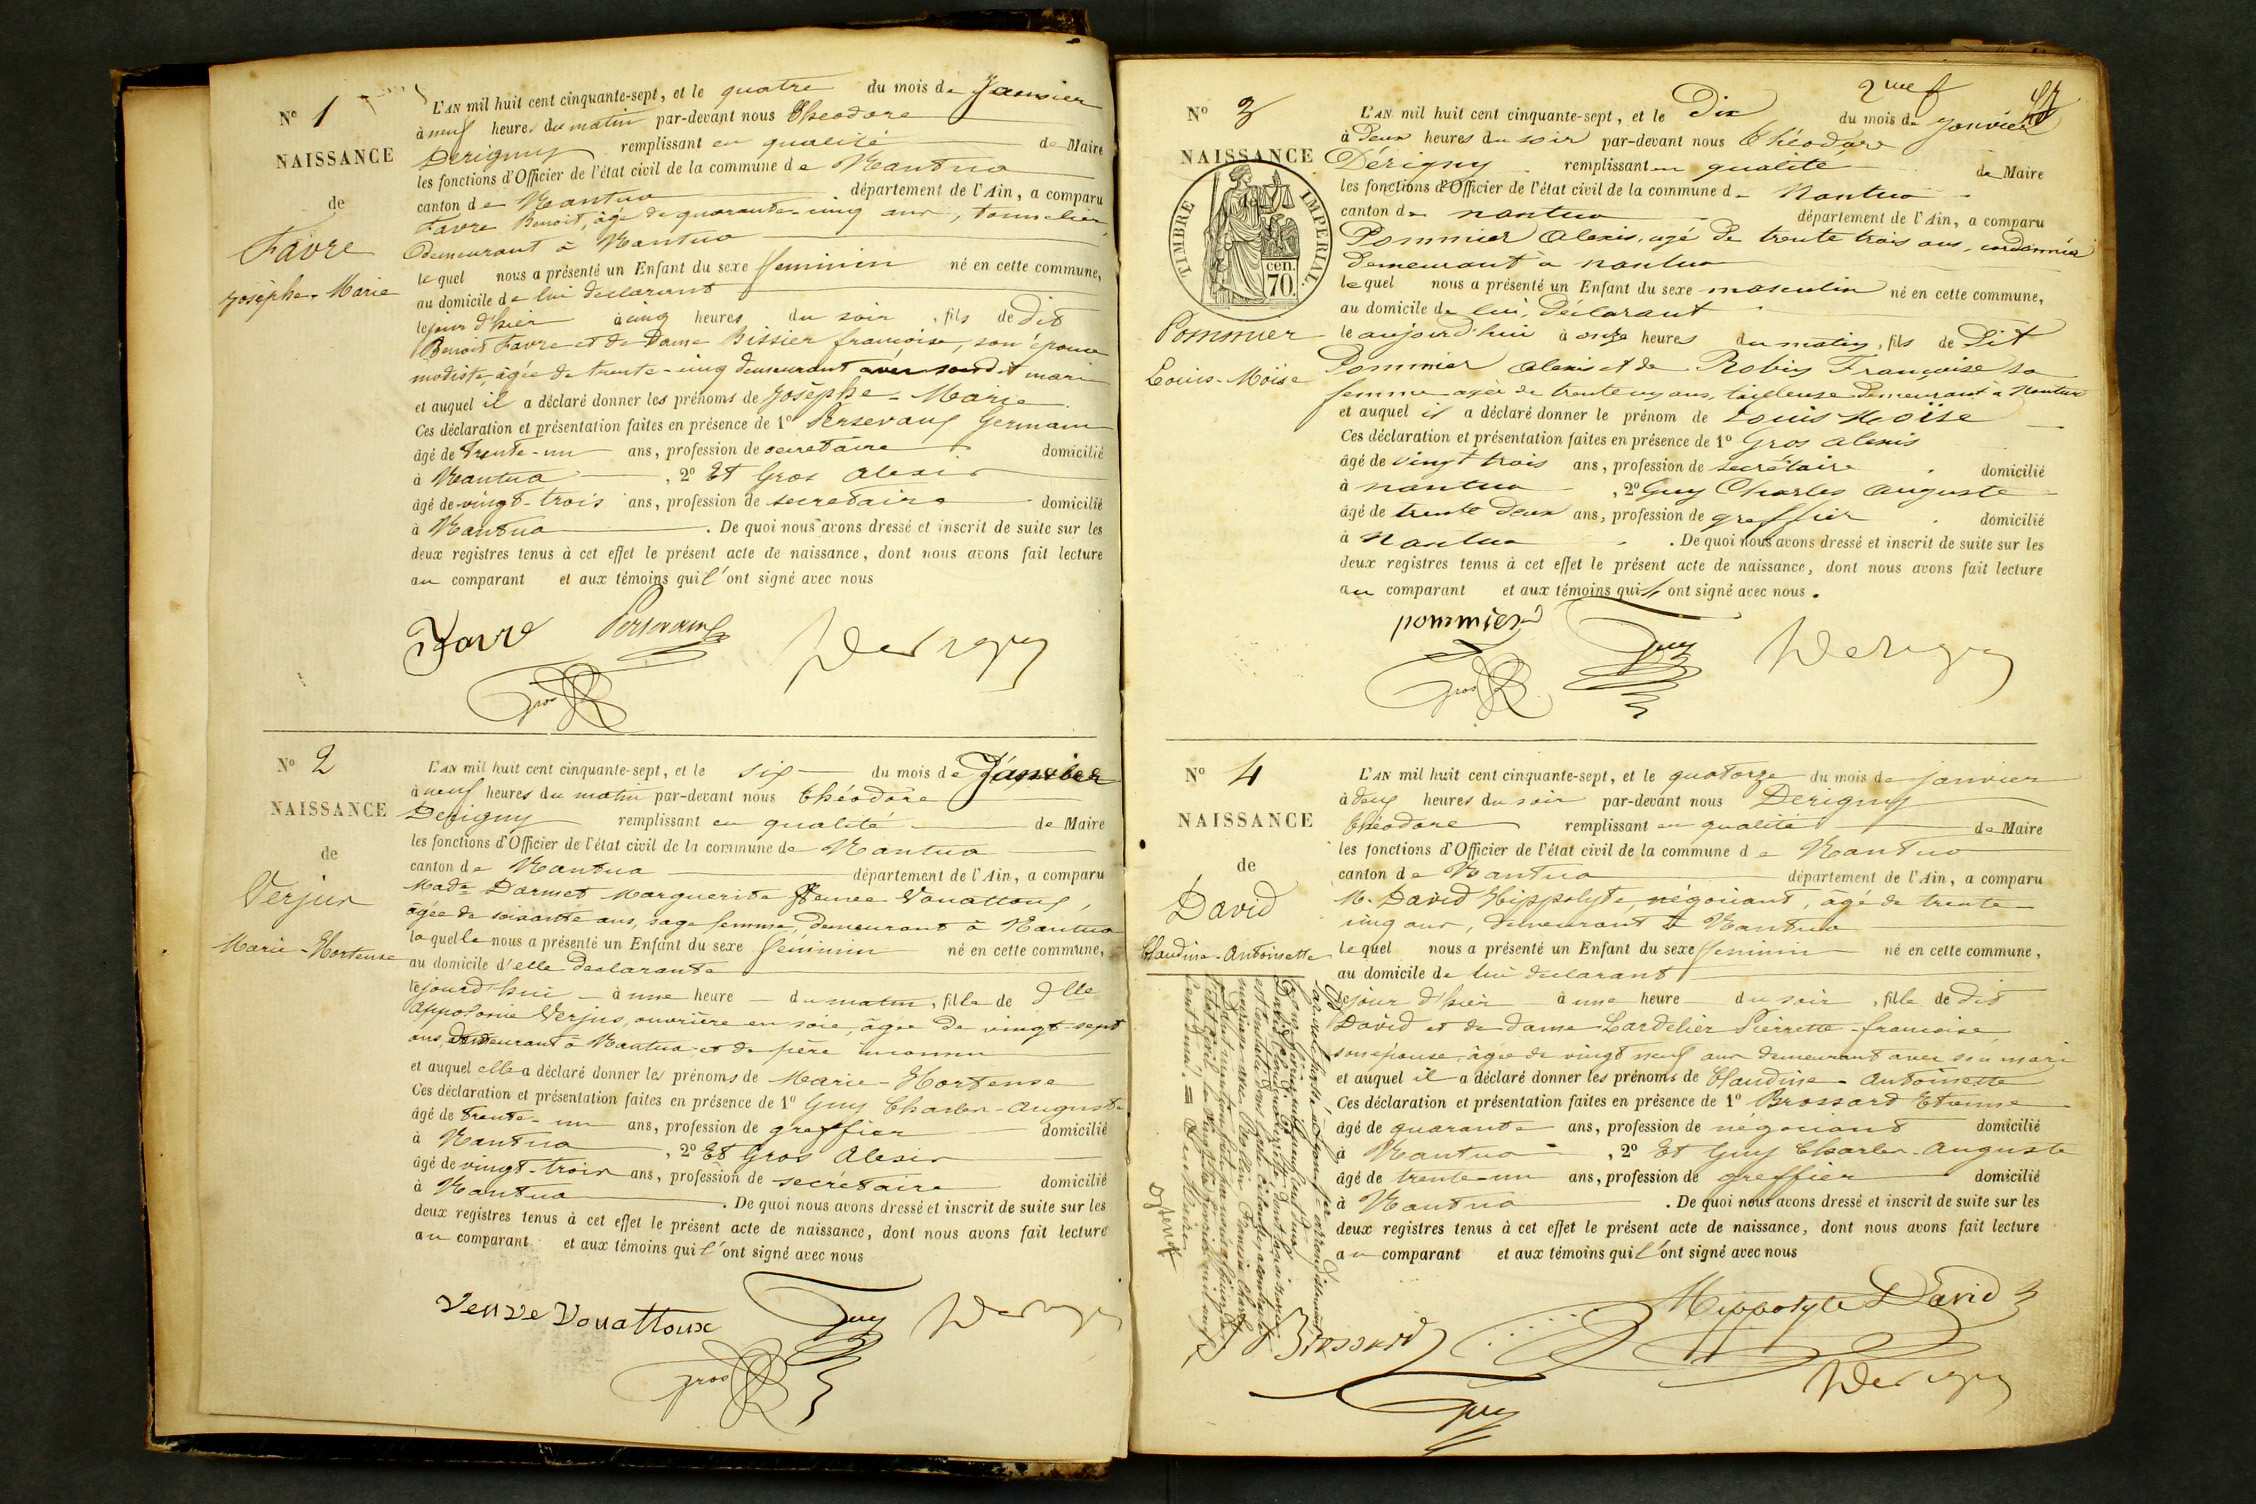 N° 1
NAISSANCE
de
Favre
Josèphe-Marie
L'AN mil huit cent cinquante-sept, et le quatre du mois de Janvier
à neuf heures du matin par-devant nous Théodore
Derigny remplissant en qualité de Maire
les fonctions d'Officier de l'état civil de la commune de Nantua
canton de Nantua département de l'Ain, a comparu
Favre Benoit, âgé de quarante-cinq ans, tonnelier,
demeurant à Nantua
lequel nous a présenté un Enfant du sexe féminin né en cette commune,
au domicile de lui déclarant
le jour d'hier à cinq heures du soir, fils de dit
Benoit Favre et de Dame Bissier françoise, son épouse
modiste, âgée de trente-cinq demeurant avec son dit mari
et auquel il a déclaré donner les prénoms de Josèphe-Marie
Ces déclaration et présentation faites en présence de 1° Persevaux Germain
âgé de trente-un ans, profession de secrétaire domicilié
à Nantua, 2° Et Gros Alexis
âgé de vingt-trois ans, profession de secrétaire domicilié
à Nantua. De quoi nous avons dressé et inscrit de suite sur les
deux registres tenus à cet effet le présent acte de naissance, dont nous avons fait lecture
au comparant et aux témoins qui l'ont signé avec nous
Favre Persevaux Derigny
Gros
N° 2
NAISSANCE
de
Verjus
Marie-Hortense
L'AN mil huit cent cinquante-sept, et le six du mois de Janvier
à neuf heures du matin par-devant nous Théodore
Derigny remplissant en qualité de Maire
les fonctions d'Officier de l'état civil de la commune de Nantua
canton de Nantua département de l'Ain, a comparu
Made Darmet Marguerite femee Vouattoux,
âgée de soixante ans, sage femme, demeurant à Nantua
laquelle nous a présenté un Enfant du sexe féminin né en cette commune,
au domicile d'elle déclarante
lejourd'hui à une heure du matin, fille de Dlle
Appolonie Verjus, ouvrière en soie, âgée de vingt-sept
ans, demeurant à Nantua et de père inconnu
et auquel elle a déclaré donner les prénoms de Marie-Hortense
Ces déclaration et présentation faites en présence de 1° Guy Charles-Auguste
âgé de trente-un ans, profession de greffier domicilié
à Nantua, 2° Et Gros Alexis
âgé de vingt-trois ans, profession de secrétaire domicilié
à Nantua. De quoi nous avons dressé et inscrit de suite sur les
deux registres tenus à cet effet le présent acte de naissance, dont nous avons fait lecture
au comparant et aux témoins qui l'ont signé avec nous
Veuve Vouattoux Guy Derigny
Gros
2me f
N° 3
NAISSANCE
TIMBRE IMPERIAL.
cen.
70.
Pommier
Louis-Moïse
L'AN mil huit cent cinquante-sept, et le Dix du mois de janvier
à Deux heures du soir par-devant nous Théodore
Dérigny remplissant en qualité de Maire
les fonctions d'Officier de l'état civil de la commune de Nantua
canton de nantua département de l'Ain, a comparu
Pommier Alexis, agé de trente trois ans, cordonnié
Demeurant à nantua
lequel nous a présenté un Enfant du sexe masculin né en cette commune,
au domicile de lui, Déclarant
le aujourd'hui à onze heures du matin, fils de Dit
Pommier alexis et de Robin Françoise sa
femme agée de trente un ans, tailleuse Demeurant à Nantua
et auquel il a déclaré donner le prénom de Louis Moïse
Ces déclaration et présentation faites en présence de 1° Gros alexis
âgé de vingt trois ans, profession de secrétaire domicilié
à nantua, 2° Guy Charles auguste
âgé de trente Deux ans, profession de greffier domicilié
à Nantua. De quoi nous avons dressé et inscrit de suite sur les
deux registres tenus à cet effet le présent acte de naissance, dont nous avons fait lecture
au comparant et aux témoins qui ont signé avec nous.
pommier Guy Derigny
Gros
N° 4
NAISSANCE
de
David
Claudine-Antoinette
L'AN mil huit cent cinquante-sept, et le quatorze du mois de janvier
à deux heures du soir par-devant nous Derigny
Théodore remplissant en qualité de Maire
les fonctions d'Officier de l'état civil de la commune de Nantua
canton de Nantua département de l'Ain, a comparu
M. David Hippolyte, négociant, âgé de trente-
cinq ans, demeurant à Nantua
lequel nous a présenté un Enfant du sexe féminin né en cette commune,
au domicile de lui déclarant
lejour d'hier à une heure du soir, fille de dit
David et de dame Lardelier Pierrette-françoise
son épouse, âgée de vingt neuf ans demeurant avec son mari
et auquel il a déclaré donner les prénoms de Claudine-Antoinette
Ces déclaration et présentation faites en présence de 1° Brossard Etienne
âgé de quarante ans, profession de négociant domicilié
à Nantua, 2° Et Guy Charles-Auguste
âgé de trente-un ans, profession de greffier domicilié
à Nantua. De quoi nous avons dressé et inscrit de suite sur les
deux registres tenus à cet effet le présent acte de naissance, dont nous avons fait lecture
au comparant et aux témoins qui l'ont signé avec nous
Hippolyte David
Brossard
Derigny
Guy